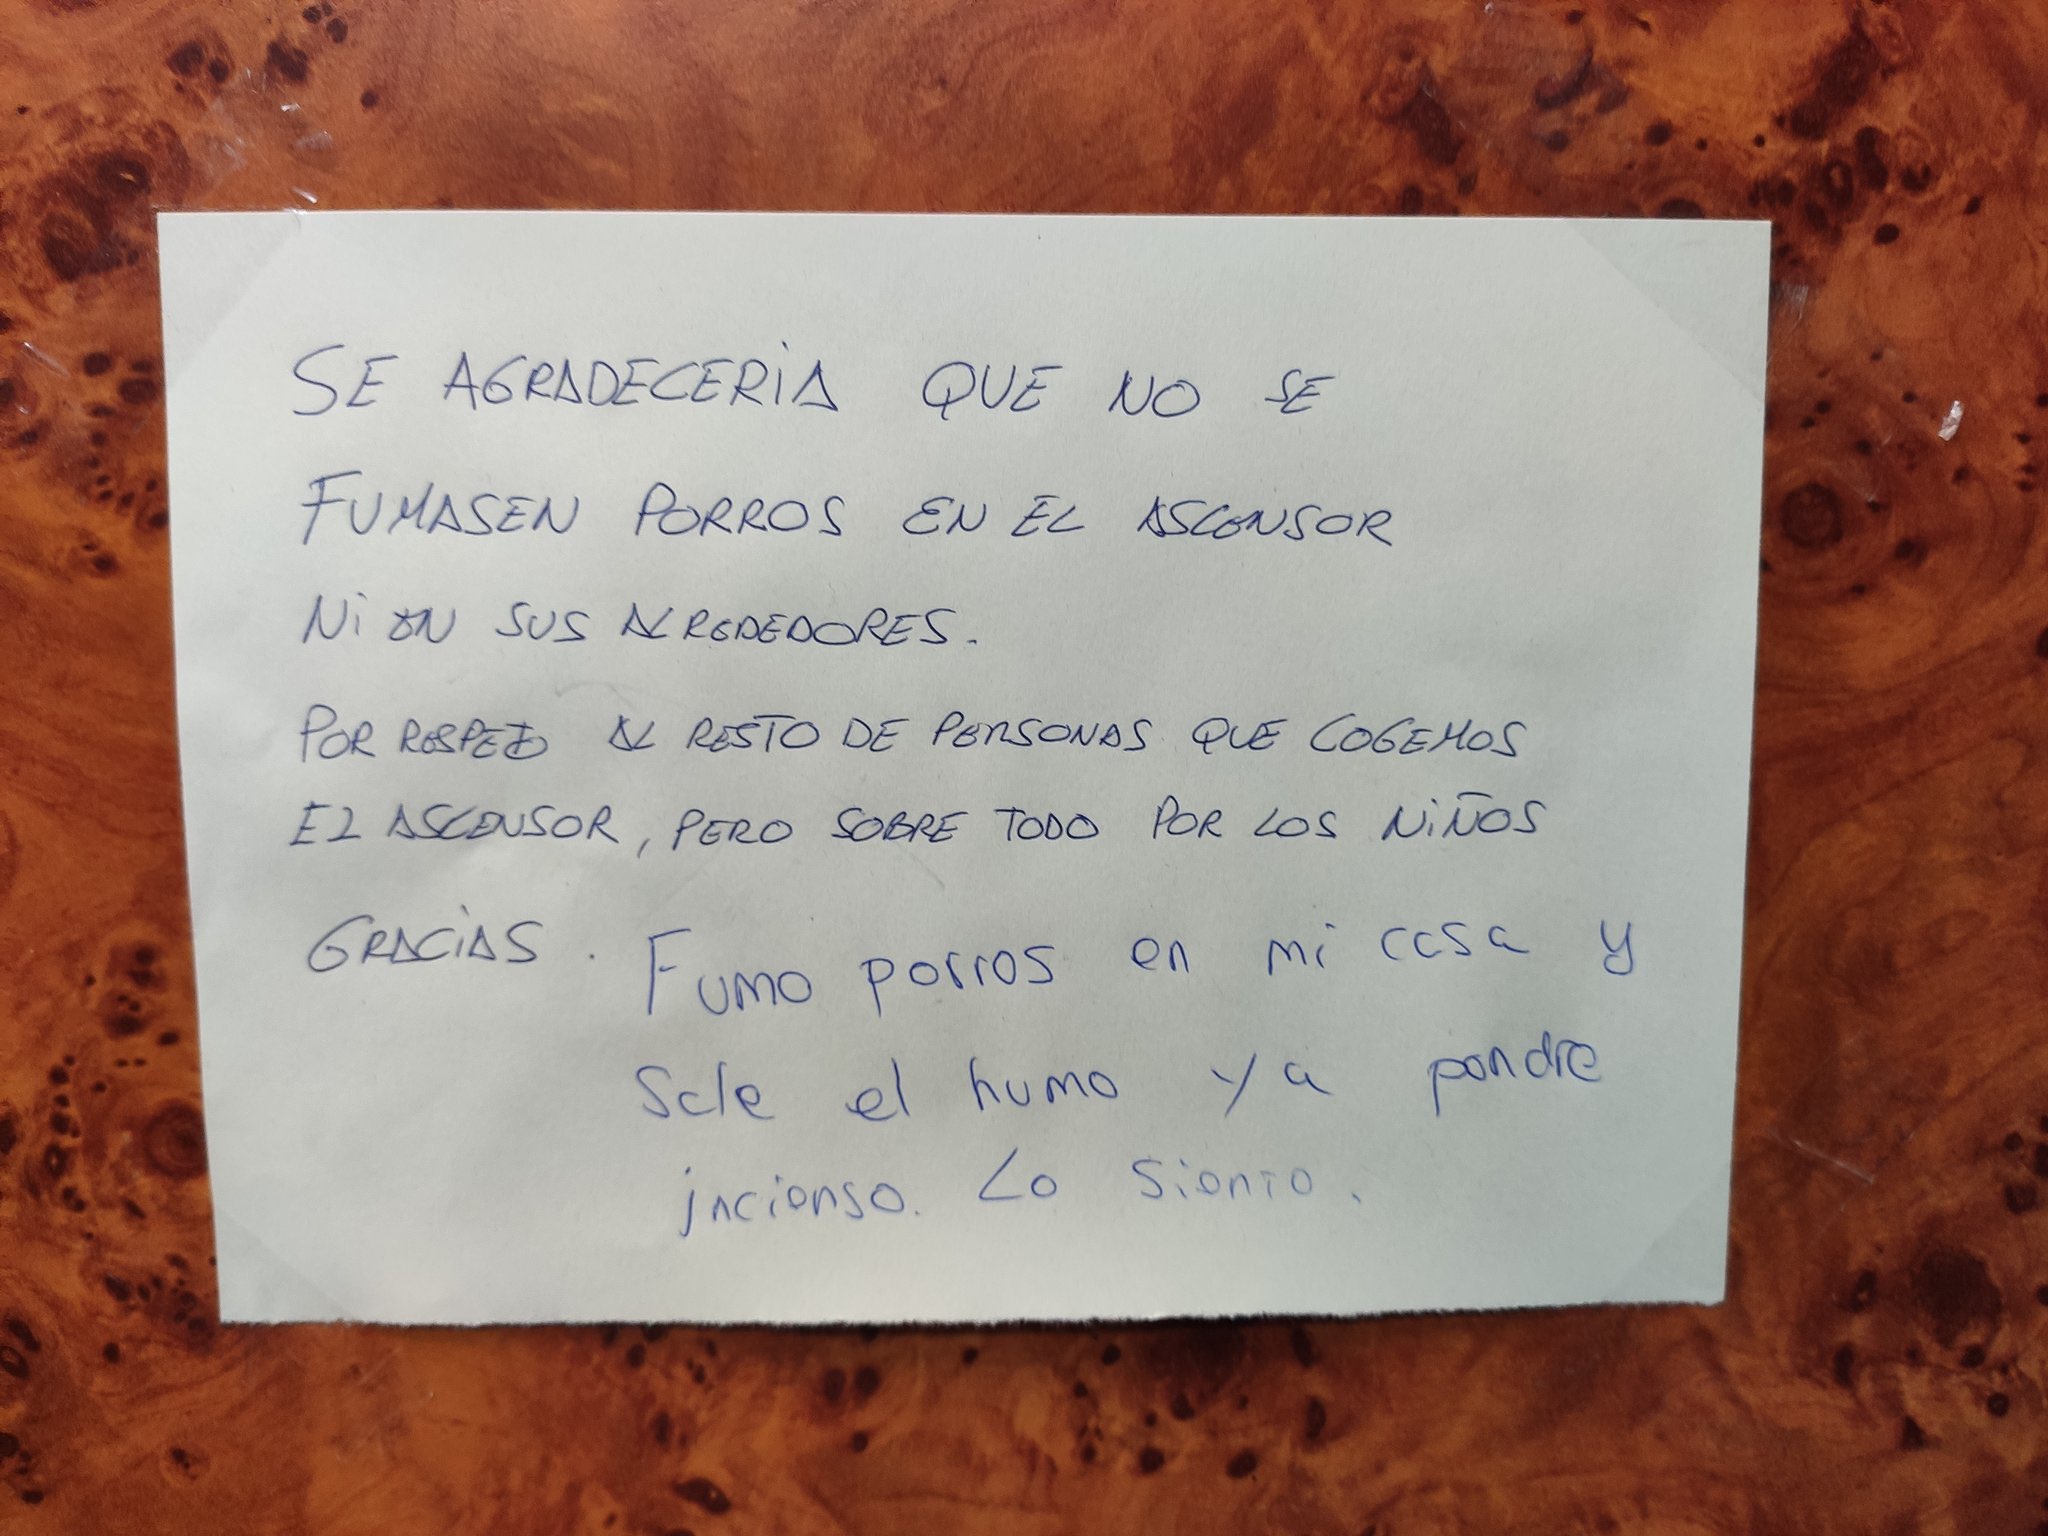 SE AGRADECERIA QUE NO SE
FUMASEN PORROS EN EL ASCENSOR
NI EN SUS ALREDEDORES.
POR RESPETO AL RESTO DE PERSONAS QUE COGEMOS
EL ASCENSOR, PERO SOBRE TODO POR LOS NIÑOS
GRACIAS.
Fumo porros en mi casa y
Sale el humo ya pondre
incienso. Lo siento.